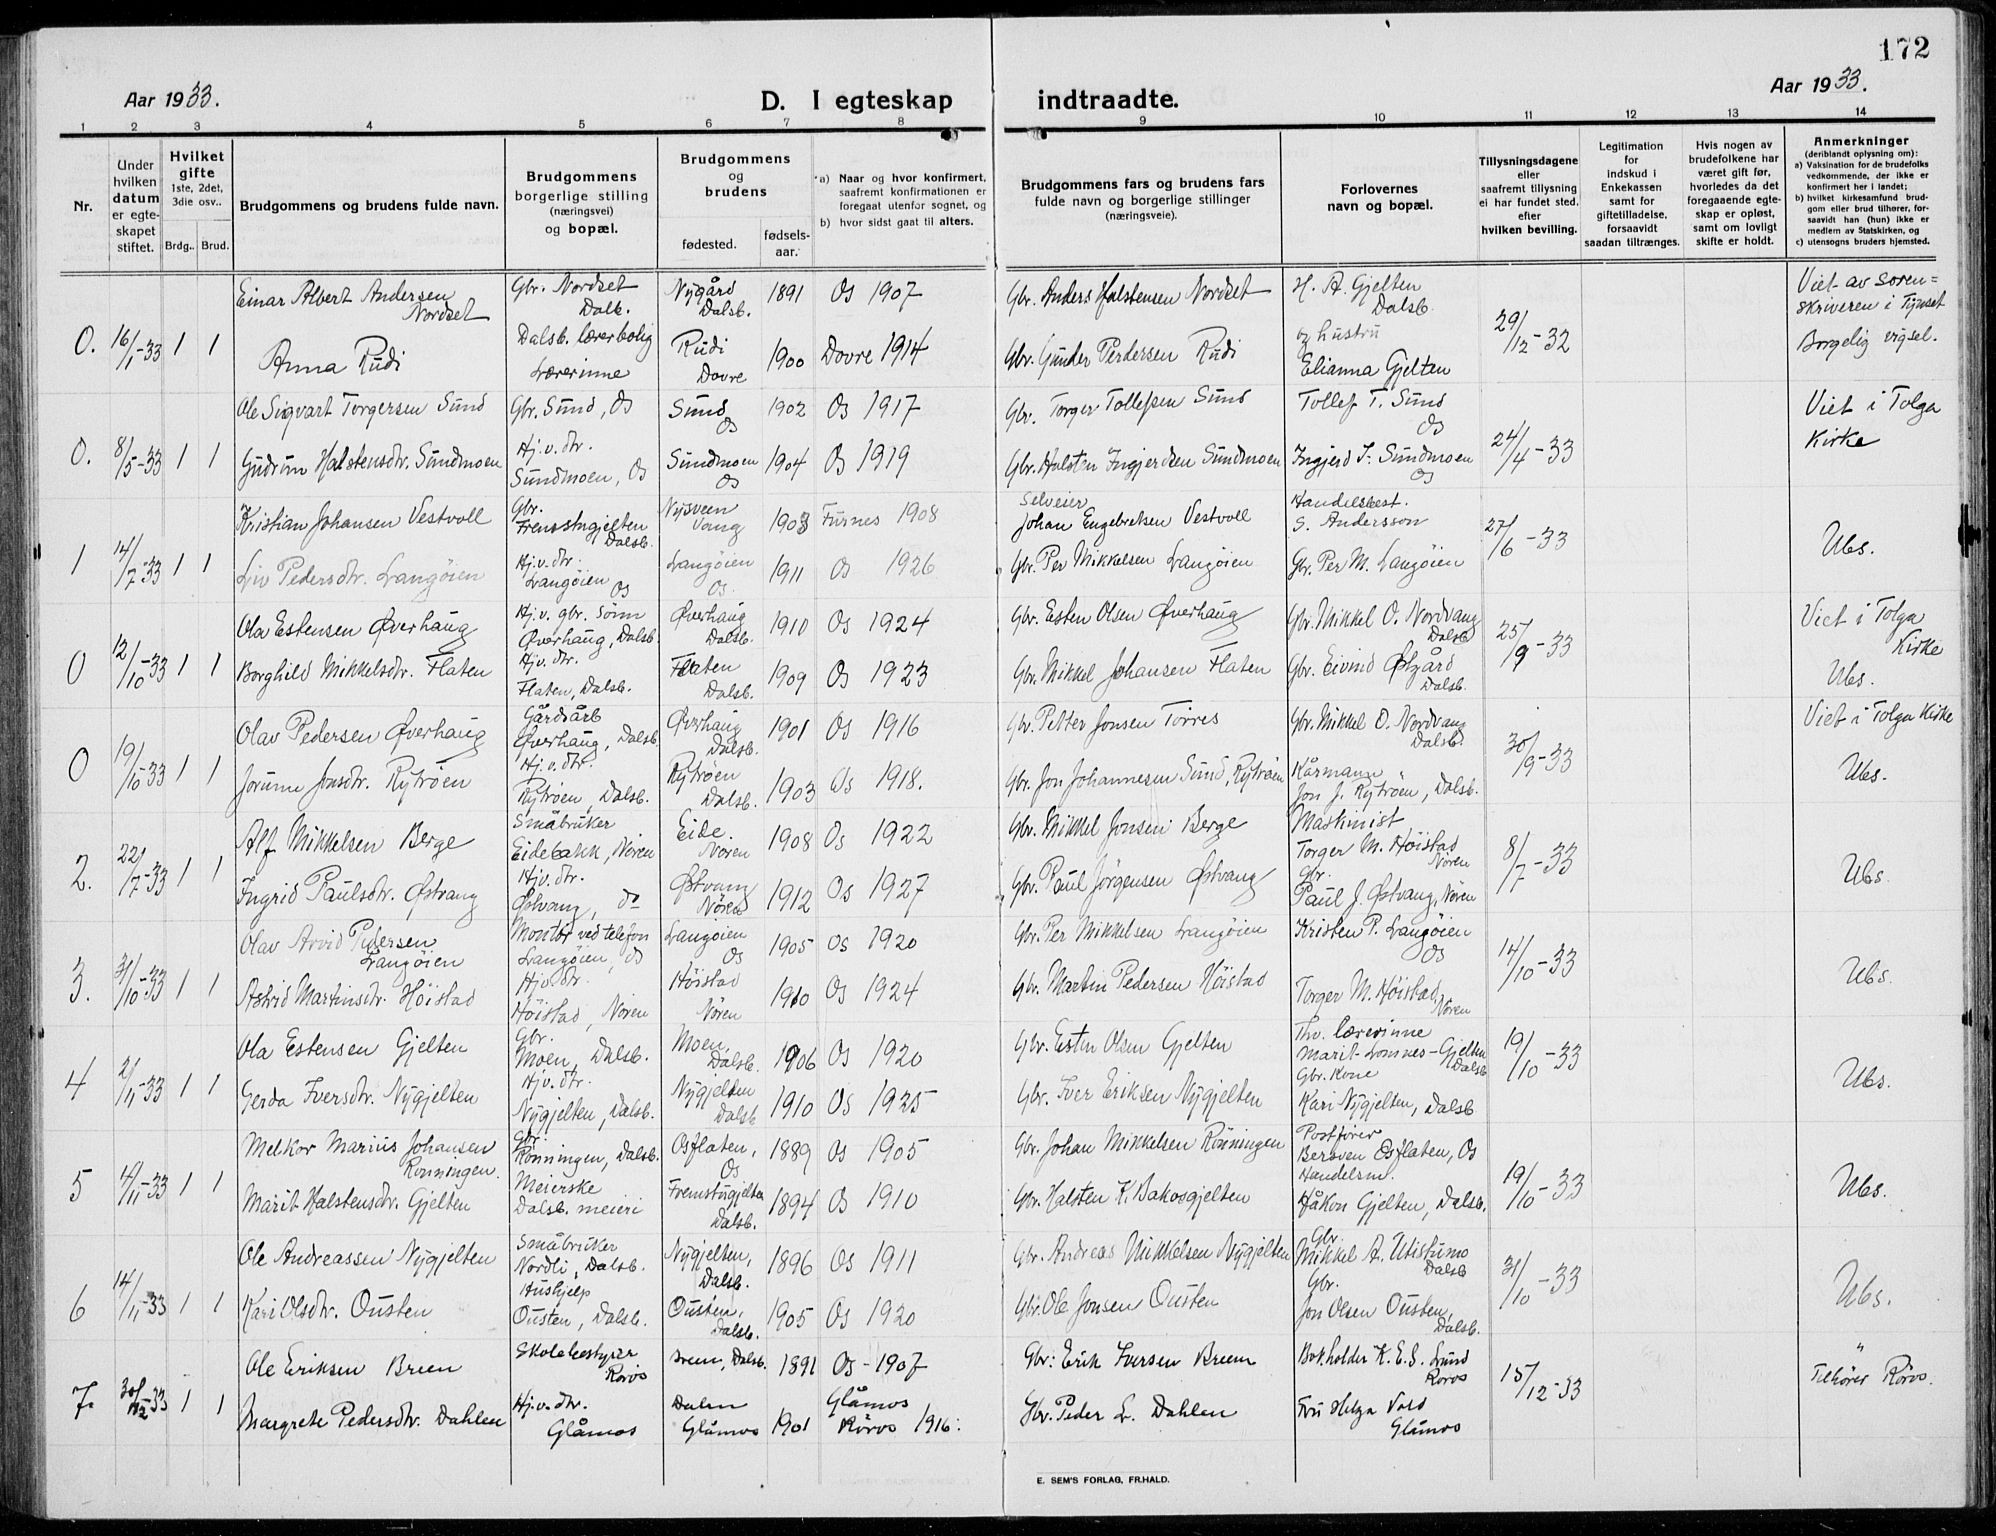 172
Aar 1933.
D. I egteskap indtraadte.
Aar 1933.
1 2 3 4 5 6 7 8 9 10 11 12 13 14
Nr.
Under hvilken datum er egte-skapet stiftet.
Hvilket gifte 1ste, 2det, 3die osv..
Brdg.. Brud.
Brudgommens og brudens fulde navn.
Brudgommens borgerlige stilling (næringsvei) og bopæl.
Brudgommens og brudens
fødested.
fødsels-aar.
a) Naar og hvor konfirmert, saafremt konfirmationen er foregaat utenfor sognet, og
b) hvor sidst gaat til alters.
Brudgommens fars og brudens fars fulde navn og borgerlige stillinger (næringsveie).
Forlovernes navn og bopæl.
Tillysningsdagene eller saafremt tillysning ei har fundet sted. efter hvilken bevilling.
Legitimation for indskud i Enkekassen samt for giftetilladelse, forsaavidt saadan tiltrænges.
Hvis nogen av brudefolkene har været gift før, hvorledes da det foregaaende egte-skap er opløst, samt om lovligt skifte er holdt.
Anmerkninger (deriblandt oplysning om):
a) Vaksination for de brudefolks vedkommende, der ikke er konfirmert her i landet;
b) hvilket kirkesamfund brud-gom eller brud tilhører, for-saavidt han (hun) ikke er medlem av Statskirken, og
c) utensogns bruders hjemsted.
Einar Albert Andersen Nordset Gbr. Nordset Dalb. Nygård Dalsb. 1891 Os 1907 Gbr. Anders Halstensen Nordset H. A. Gjelten Dalsb. Viet av soren=skriveren i Tynset
0. 16/1-33 1 1 29/12-32
Anna Rudi Dalsb. lærerbolig Lærerinne Rudi Dovre 1900 Dovre 1914 Gbr. Gunder Perdersen Rudi og hustru Elianna Gjelten Borgelig vigsel.
Ole Sigvart Torgersen Sund Gbr. Sund, Os Sund Os 1902 Os 1917 Gbr. Torger Tollefsen Sund Tollef T. Sund Os Viet i Tolga Kirke
0. 8/5-33 1 1 24/4-33
Gudrun Halstensdtr. Sundmoen Hj.v.dtr. Sundmoen, Os Sundmoen Os 1904 Os 1919 Gbr. Halsten Ingjerdsen Sundmoen Ingjerd T. Sundmoen Os
Kristian Johansen Vestvoll Gbr. Fremstugjelten Dalsb. Nysveen Vang 1903 Furnes 1908 Selveier Johan Engebretsen Vestvoll Handelsbest. S. Andersson
1 14/7-33 1 1 27/6-33 Ubs.
Liv Pedersdtr. Langøien Hj.v.dtr. Langøien Os Langøien Os. 1911 Os 1926 Gbr. Per Mikkelsen Langøien Gbr. Per M. Langøien
Ola Estensen Øverhaug Hj.v. gbr. sønn Øverhaug, Dalsb. Øverhaug Dalsb. 1910 Os 1924 Gbr. Esten Olsen Øverhaug Gbr. Mikkel O. Nordvang Dalsb. Viet i Tolga Kirke
0 12/10-33 1 1 25/9-33
Borghild Mikkelsdtr. Flaten Hj.v. dtr. Flaten, Dalsb. Flaten Dalsb. 1909 Os 1923 Gbr. Mikkel Johansen Flaten Gbr. Eivind Østgård Dalsb. Ubs.
Olav Pedersen Øverhaug Gårdsarb Øverhaug, Dalsb. Øverhaug Dalsb. 1901 Os 1916 Gbr. Petter Jonsen Torres Gbr. Mikkel O. Nordvang Dalsb. Viet i Tolga Kirke
0 19/10-33 1 1 30/9-33
Jorunn Jonsdtr. Rytrøen Hj.v.dtr. Rytrøen, Dalsb. Rytrøen Dalsb. 1903 Os 1918. Gbr. Jon Johannesen Sund, Rytrøen Kårmann Jon J. Rytrøen, Dalsb. Ubs.
Alf Mikkelsen Berge Småbruker Eidebakk, Nøren Eide. Nøren 1908 Os 1922 Gbr. Mikkel Jonsen Berge Maskinist Torger M. Høistad Nøren
2. 22/7-33 1 1 8/7-33 Ubs.
Ingrid Paulsdtr. Østvang Hj.v.dtr. Østvang, do Østvang Nøren 1912 Os 1927 Gbr. Paul Jørgensen Østvang Gbr. Paul J. Østvang, Nøren
Olav Arvid Pedersen Langøien Montør ved telefon Langøien, Os Langøien Os 1905 Os 1920 Gbr. Per Mikkelsen Langøien Kristen P. Langøien Os
3. 31/10-33 1 1 14/10-33 Ubs.
Astrid Martinsdtr. Høistad Hj.v.dtr. Høistad, Nøren Høistad Nøren 1910 Os 1924 Gbr. Martin Pedersen Høistad Torger M. Høistad, Nøren
Ola Estensen Gjelten Gbr. Moen, Dalsb. Moen, Dalsb. 1906 Os 1920 Gbr. Esten Olsen Gjelten Thv. lærerinne Marit Lomnes-Gjelten Dalsb
4 2/11-33 1 1 19/10-33 Ubs.
Gerda Iversdtr. Nygjelten Hj.v.dtr. Nygjelten, Dalsb. Nygjelten Dalsb 1910 Os 1925 Gbr. Iver Eriksen Nygjelten Gbr. Kone Kari Nygjelten, Dalsb
Melkor Marius Johansen Rønningen. Gbr. Rønningen, Dalsb. Osflaten, Os 1889 Os 1905 Gbr. Johan Mikkelsen Rønningen Postfører Bersven Osflaten, Os
5 4/11-33 1 1 19/10-33 Ubs.
Marit Halstensdtr. Gjelten Meierske Dalsb. meieri Fremstugjelten Dalsb. 1894 Os 1910 Gbr. Halsten K. Bakosgjelten Handelsm. Håkon Gjelten, Dalsb.
Ole Andreassen Nygjelten Småbruker Nordli, Dalsb. Nygjelten, Dalsb. 1896 Os 1911 Gbr. Andreas Mikkelsen Nygjelten Gbr. Mikkel A. Utistumo Dalsb
6 14/11-33 1 1 31/10-33 Ubs.
Kari Olsdtr. Ousten Hushjelp Ousten, Dalsb. Ousten, Dalsb. 1905 Os 1920 Gbr. Ole Jonsen Ousten Gbr. Jon Olsen Ousten, Dalsb.
Ole Eriksen Breen Skolebestyrer Røros Breen, Dalsb. 1891 Os - 1907 Gbr: Erik Iversen Breen Bokholder K. E. S. Lund Røros "
7. 30/12-33 1 1 15/12-33 Tilhører Røros.
Margrete Pedersdtr. Dahlen Hj.v.dtr. Glåmos Dalen Glåmos 1901 Glåmos Røros 1916: Gbr. Peder L. Dahlen Fru Helga Vold Glåmos
E. SEM'S FORLAG, FR.HALD.